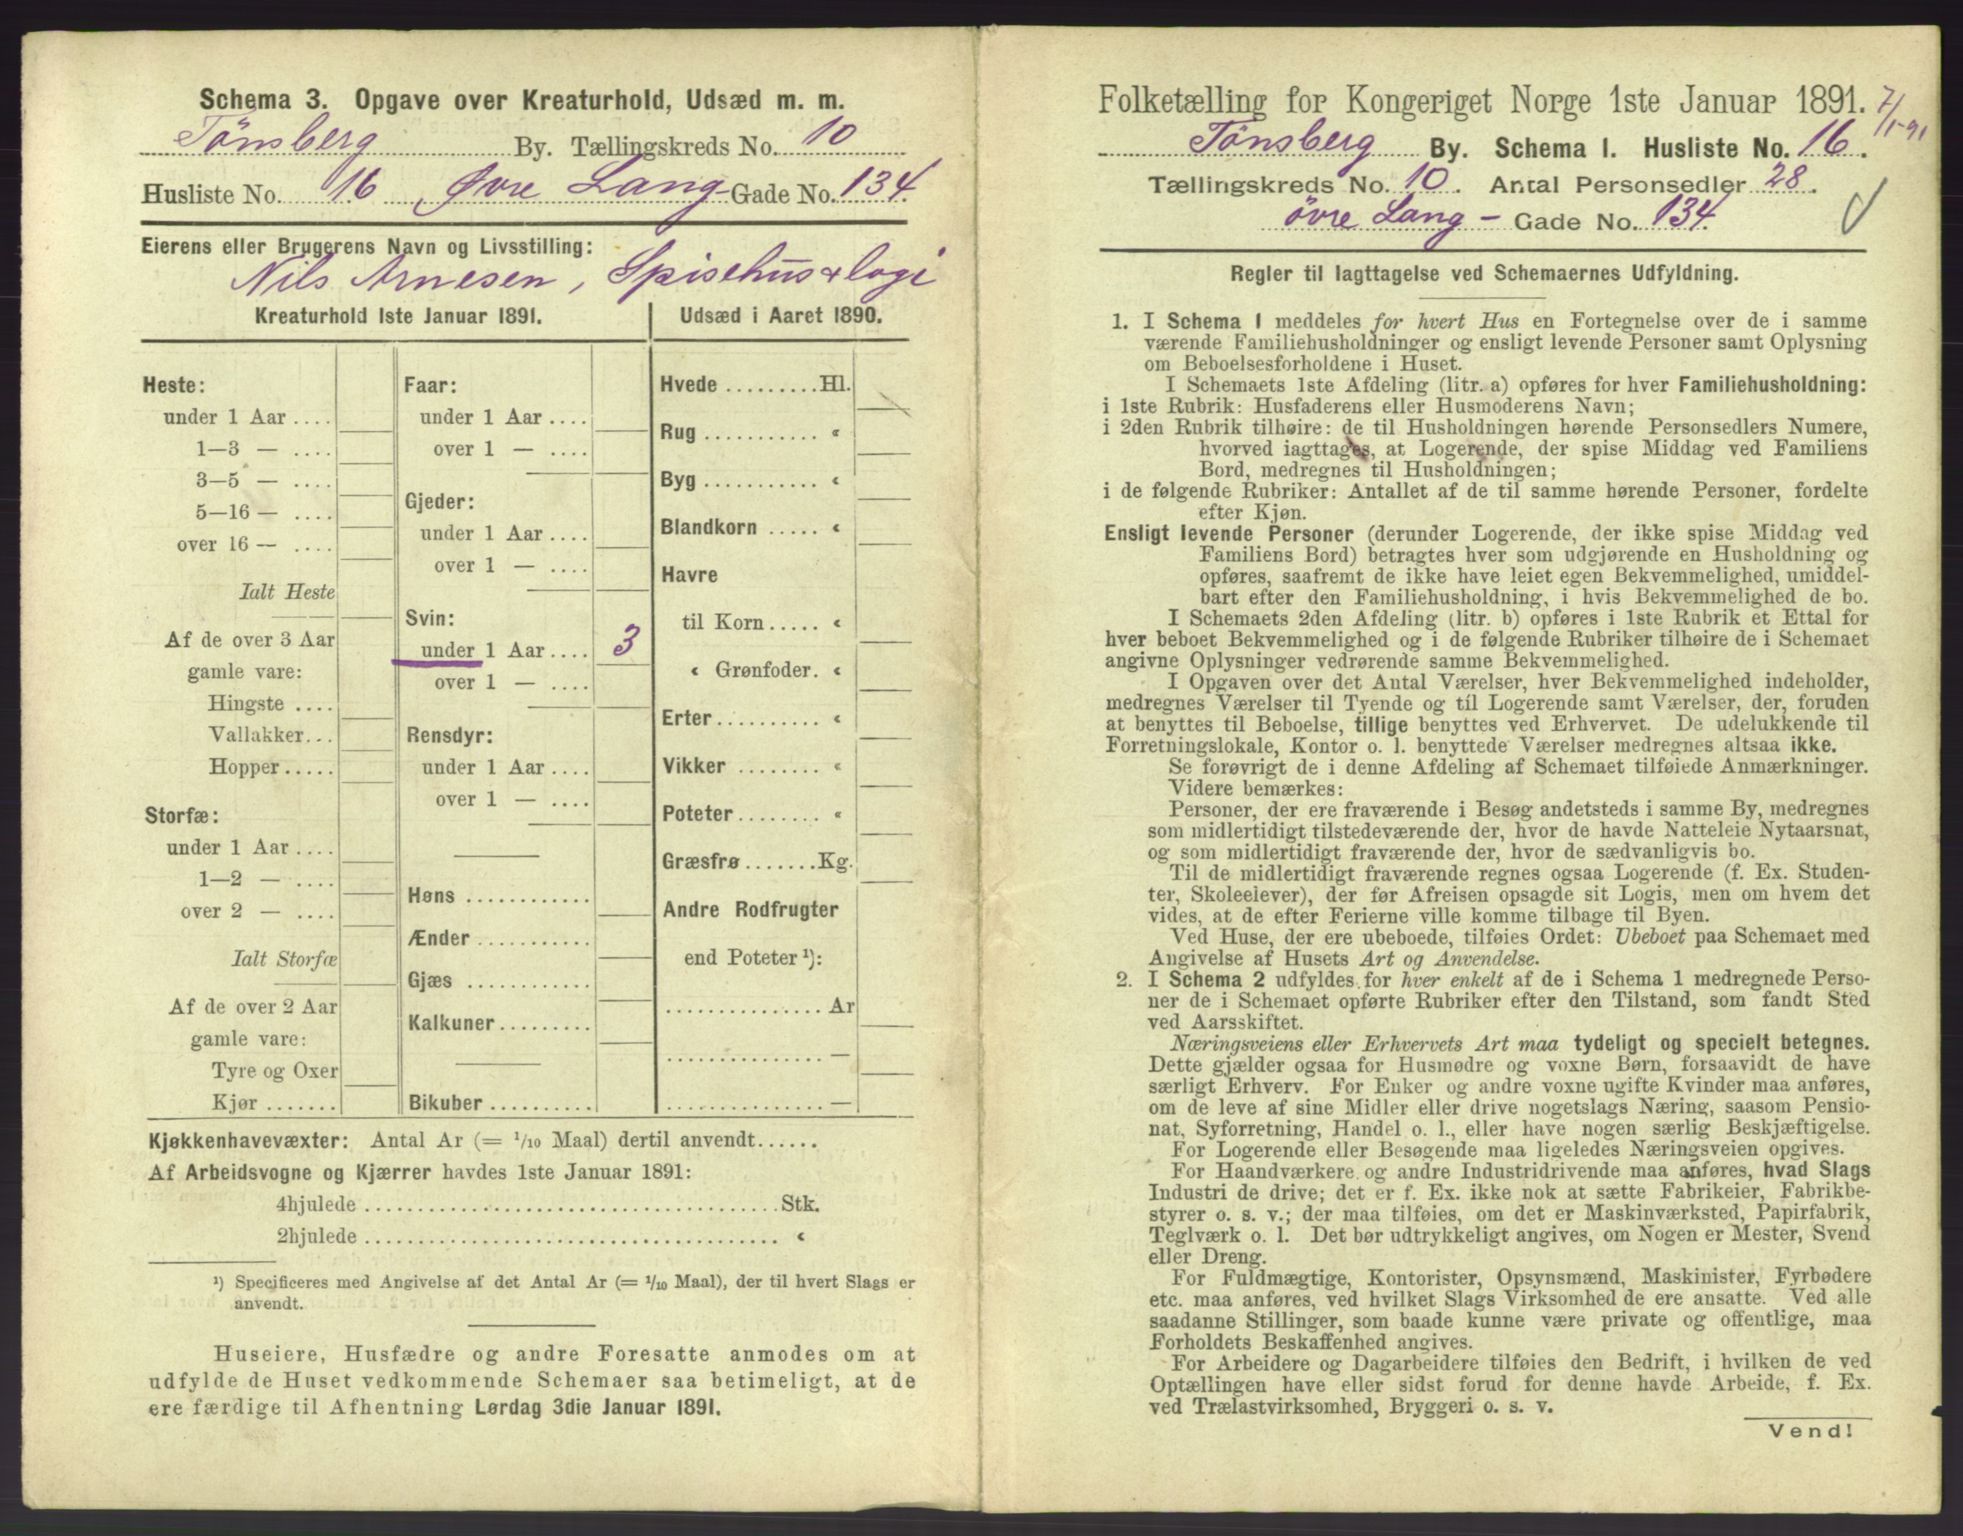 Schema 3. Opgave over Kreaturhold, Udsæd m. m.
Tönsberg By. Tællingskreds No. 10
Husliste No. 16 Øvre Lang Gade No. 134.
Eierens eller Brugerens Navn og Livsstilling:
Nils Arnesen, Spisehus & logi
Kreaturhold 1ste Januar 1891.
Heste:
under 1 Aar ....
1—3 — ....
3—5 — ....
5—16 — ....
over 16 — ....
Ialt Heste
Af de over 3 Aar
gamle vare:
Hingste ....
Vallakker...
Hopper.....
Storfæ:
under 1 Aar ....
1—2 — ....
over 2 — ....
Ialt Storfæ
Af de over 2 Aar
gamle vare:
Tyre og Oxer
Kjør .......
Faar:
under 1 Aar ....
over 1 — ....
Gjeder:
under 1 Aar ....
over 1 — ....
Svin:
under 1 Aar .... 3
over 1 — ....
Rensdyr:
under 1 Aar ....
over 1 — ....
Høns ............
Ænder ...........
Gjæs ............
Kalkuner.........
Bikuber ..........
Udsæd i Aaret 1890.
Hvede .........Hl.
Rug ........... «
Byg ........... «
Blandkorn ..... «
Havre
til Korn..... «
« Grønfoder. «
Erter.......... «
Vikker ........ «
Poteter........ «
Græsfrø.......Kg.
Andre Rodfrugter
end Poteter ¹):
............... Ar
............... —
............... —
Kjøkkenhavevæxter: Antal Ar (= 1/10 Maal) dertil anvendt......
Af Arbeidsvogne og Kjærrer havdes 1ste Januar 1891:
4hjulede ....................................... Stk.
2hjulede ....................................... «
¹) Specificeres med Angivelse af det Antal Ar (= 1/10 Maal), der til hvert Slags er
anvendt.
Huseiere, Husfædre og andre Foresatte anmodes om at
udfylde de Huset vedkommende Schemaer saa betimeligt, at de
ere færdige til Afhentning Lørdag 3die Januar 1891.
Folketælling for Kongeriget Norge 1ste Januar 1891. 7/1-91
Tönsberg By. Schema I. Husliste No. 16.
Tællingskreds No. 10. Antal Personsedler 28.
övre Lang - Gade No. 134.
Regler til Iagttagelse ved Schemaernes Udfyldning.
1. I Schema I meddeles for hvert Hus en Fortegnelse over de i samme
værende Familiehusholdninger og ensligt levende Personer samt Oplysning
om Beboelsesforholdene i Huset.
I Schemaets 1ste Afdeling (litr. a) opføres for hver Familiehusholdning:
i 1ste Rubrik: Husfaderens eller Husmoderens Navn;
i 2den Rubrik tilhøire: de til Husholdningen hørende Personsedlers Numere,
hvorved iagttages, at Logerende, der spise Middag ved Familiens
Bord, medregnes til Husholdningen;
i de følgende Rubriker: Antallet af de til samme hørende Personer, fordelte
efter Kjøn.
Ensligt levende Personer (derunder Logerende, der ikke spise Middag ved
Familiens Bord) betragtes hver som udgjørende en Husholdning og
opføres, saafremt de ikke have leiet egen Bekvemmelighed, umiddel-
bart efter den Familiehusholdning, i hvis Bekvemmelighed de bo.
I Schemaets 2den Afdeling (litr. b) opføres i 1ste Rubrik et Ettal for
hver beboet Bekvemmelighed og i de følgende Rubriker tilhøire de i Schemaet
angivne Oplysninger vedrørende samme Bekvemmelighed.
I Opgaven over det Antal Værelser, hver Bekvemmelighed indeholder,
medregnes Værelser til Tyende og til Logerende samt Værelser, der, foruden
at benyttes til Beboelse, tillige benyttes ved Erhvervet. De udelukkende til
Forretningslokale, Kontor o. l. benyttede Værelser medregnes altsaa ikke.
Se forøvrigt de i denne Afdeling af Schemaet tilføiede Anmærkninger.
Videre bemærkes:
Personer, der ere fraværende i Besøg andetsteds i samme By, medregnes
som midlertidigt tilstedeværende der, hvor de havde Natteleie Nytaarsnat,
og som midlertidigt fraværende der, hvor de sædvanligvis bo.
Til de midlertidigt fraværende regnes ogsaa Logerende (f. Ex. Studen-
ter, Skoleelever), der før Afreisen opsagde sit Logis, men om hvem det
vides, at de efter Ferierne ville komme tilbage til Byen.
Ved Huse, der ere ubeboede, tilføies Ordet: Ubeboet paa Schemaet med
Angivelse af Husets Art og Anvendelse.
2. I Schema 2 udfyldes for hver enkelt af de i Schema 1 medregnede Perso-
ner de i Schemaet opførte Rubriker efter den Tilstand, som fandt Sted
ved Aarsskiftet.
Næringsveiens eller Erhvervets Art maa tydeligt og specielt betegnes.
Dette gjælder ogsaa for Husmødre og voxne Børn, forsaavidt de have
særligt Erhverv. For Enker og andre voxne ugifte Kvinder maa anføres,
om de leve af sine Midler eller drive nogetslags Næring, saasom Pensio-
nat, Syforretning, Handel o. l., eller have nogen særlig Beskjæftigelse.
For Logerende eller Besøgende maa ligeledes Næringsveien opgives.
For Haandværkere og andre Industridrivende maa anføres, hvad Slags
Industri de drive; det er f. Ex. ikke nok at sætte Fabrikeier, Fabrikbe-
styrer o. s. v.; der maa tilføies, om det er Maskinværksted, Papirfabrik,
Teglværk o. l. Det bør udtrykkeligt angives, om Nogen er Mester, Svend
eller Dreng.
For Fuldmægtige, Kontorister, Opsynsmænd, Maskinister, Fyrbødere
etc. maa anføres, ved hvilket Slags Virksomhed de ere ansatte. Ved alle
saadanne Stillinger, som baade kunne være private og offentlige, maa
Forholdets Beskaffenhed angives.
For Arbeidere og Dagarbeidere tilføies den Bedrift, i hvilken de ved
Optællingen have eller sidst forud for denne havde Arbeide, f. Ex.
ved Trælastvirksomhed, Bryggeri o. s. v.
Vend!